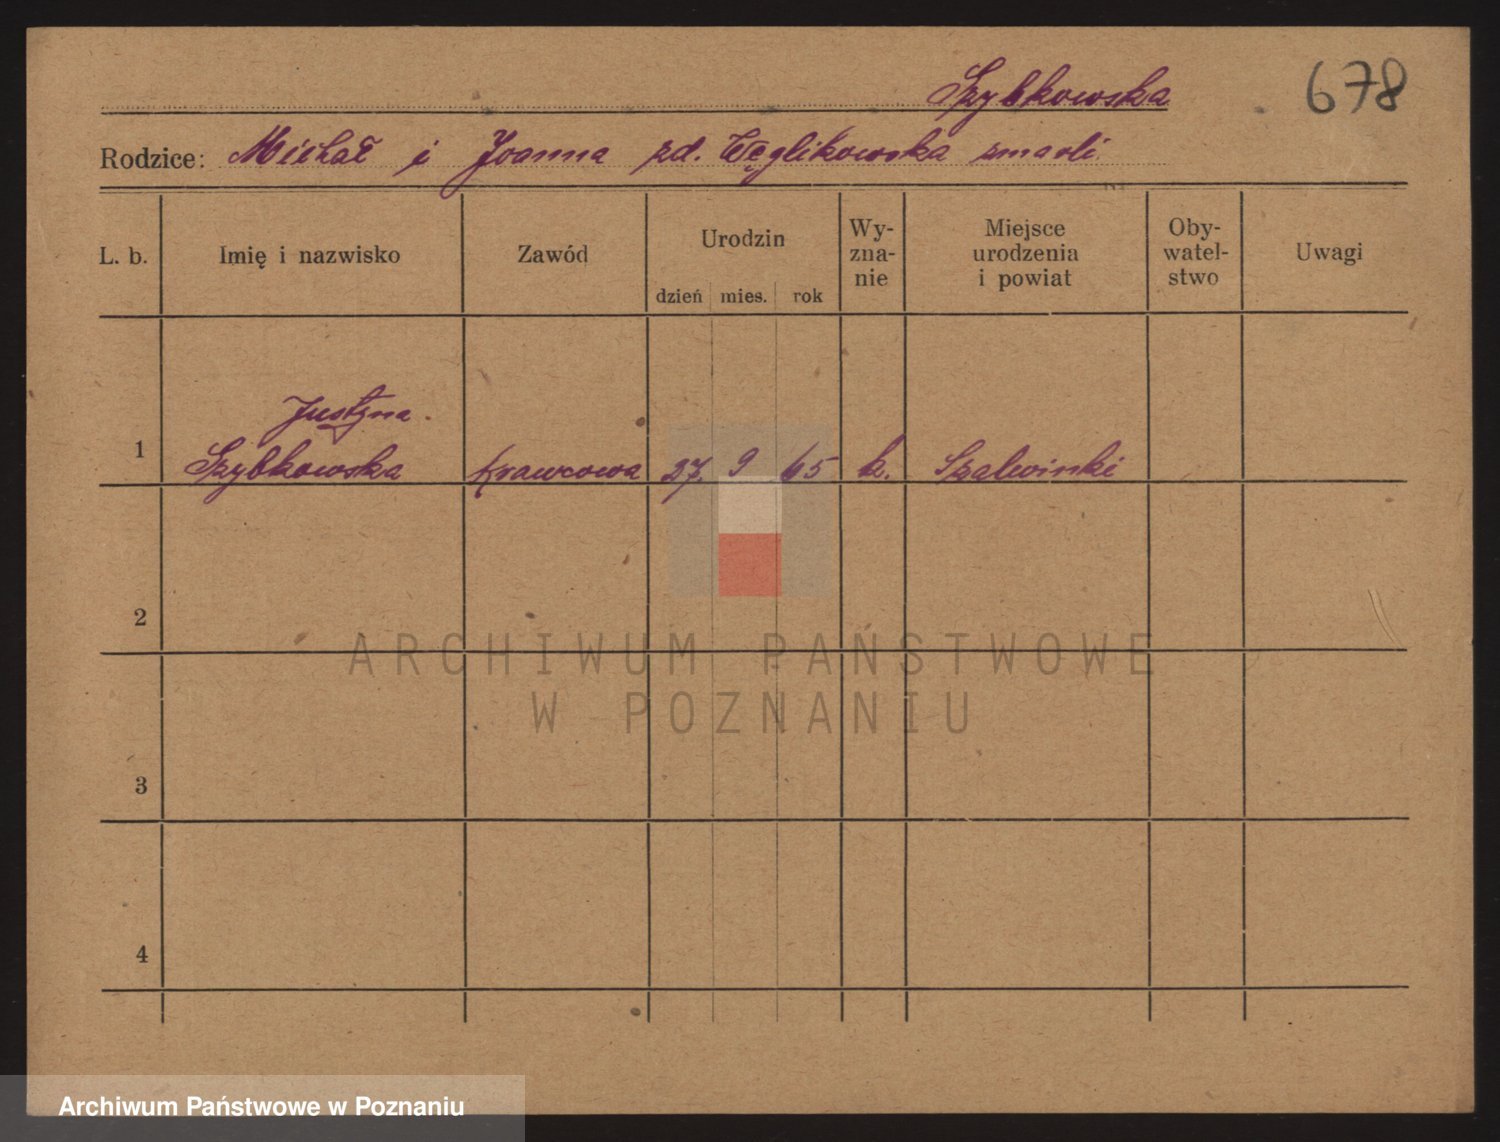 Szybkowska 678
Rodzice: Michał i Joanna zd. Węglikowska zmarli
L. b. Imię i nazwisko Zawód Urodzin dzień mies. rok Wy-zna-nie Miejsce urodzenia i powiat Oby-watel-stwo Uwagi
Justyna
1 Szybkowska Krawcowa 27. 9 65 k. Szalwinki
2
ARCHIWUM PAŃSTWOWE
W POZNANIU
3
4
Archiwum Państwowe w Poznaniu